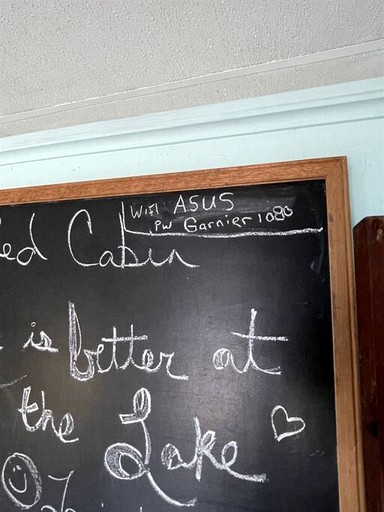 Wifi ASUS
PW Garnier1080
ed Cabin
is better at
the Lake